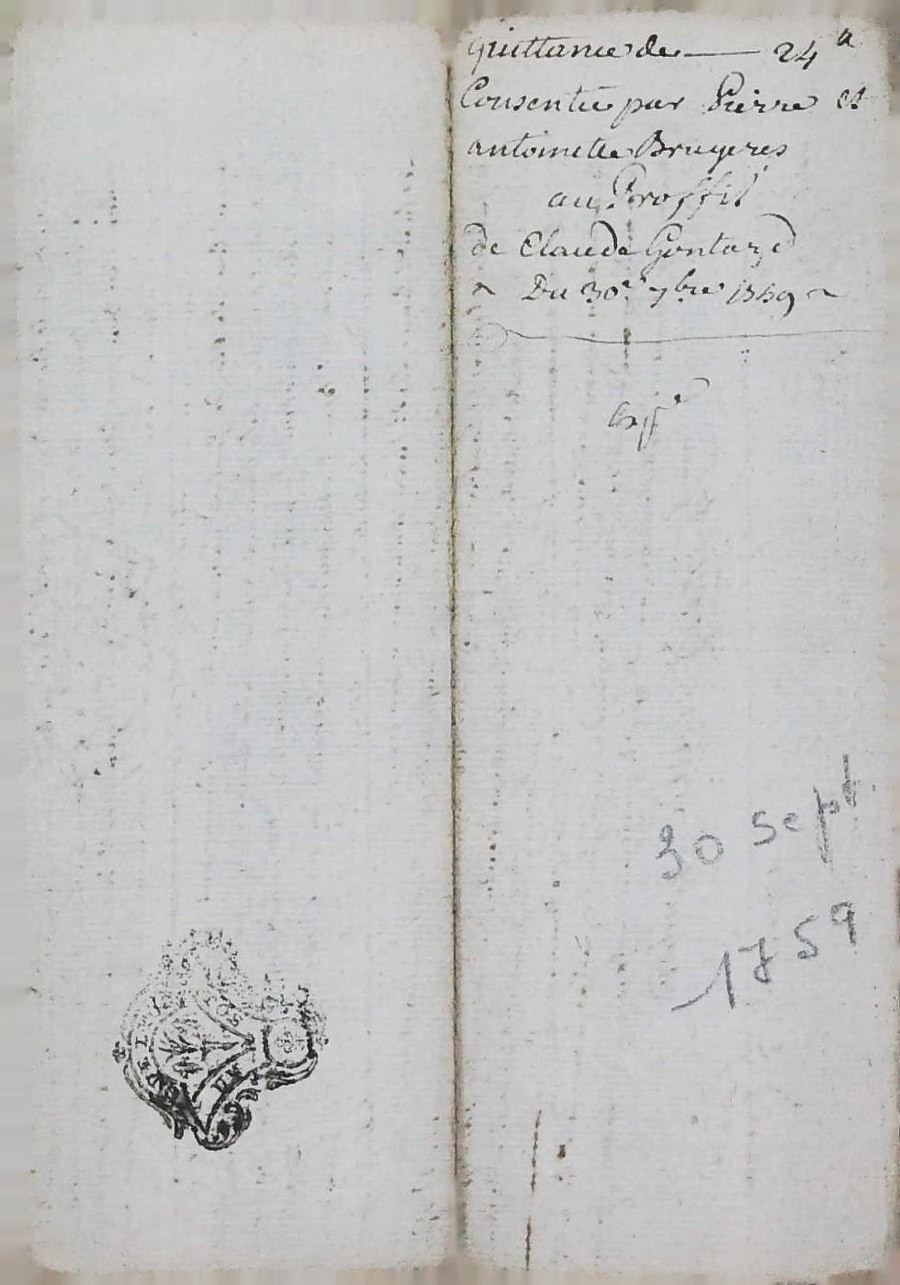 quittance de — 24 #
Consentie par Pierre et
antoinette Bruyeres
au Proffit
de Claude Gontard
Du 30e 7bre 1759
Expe
30 Sept.
1759